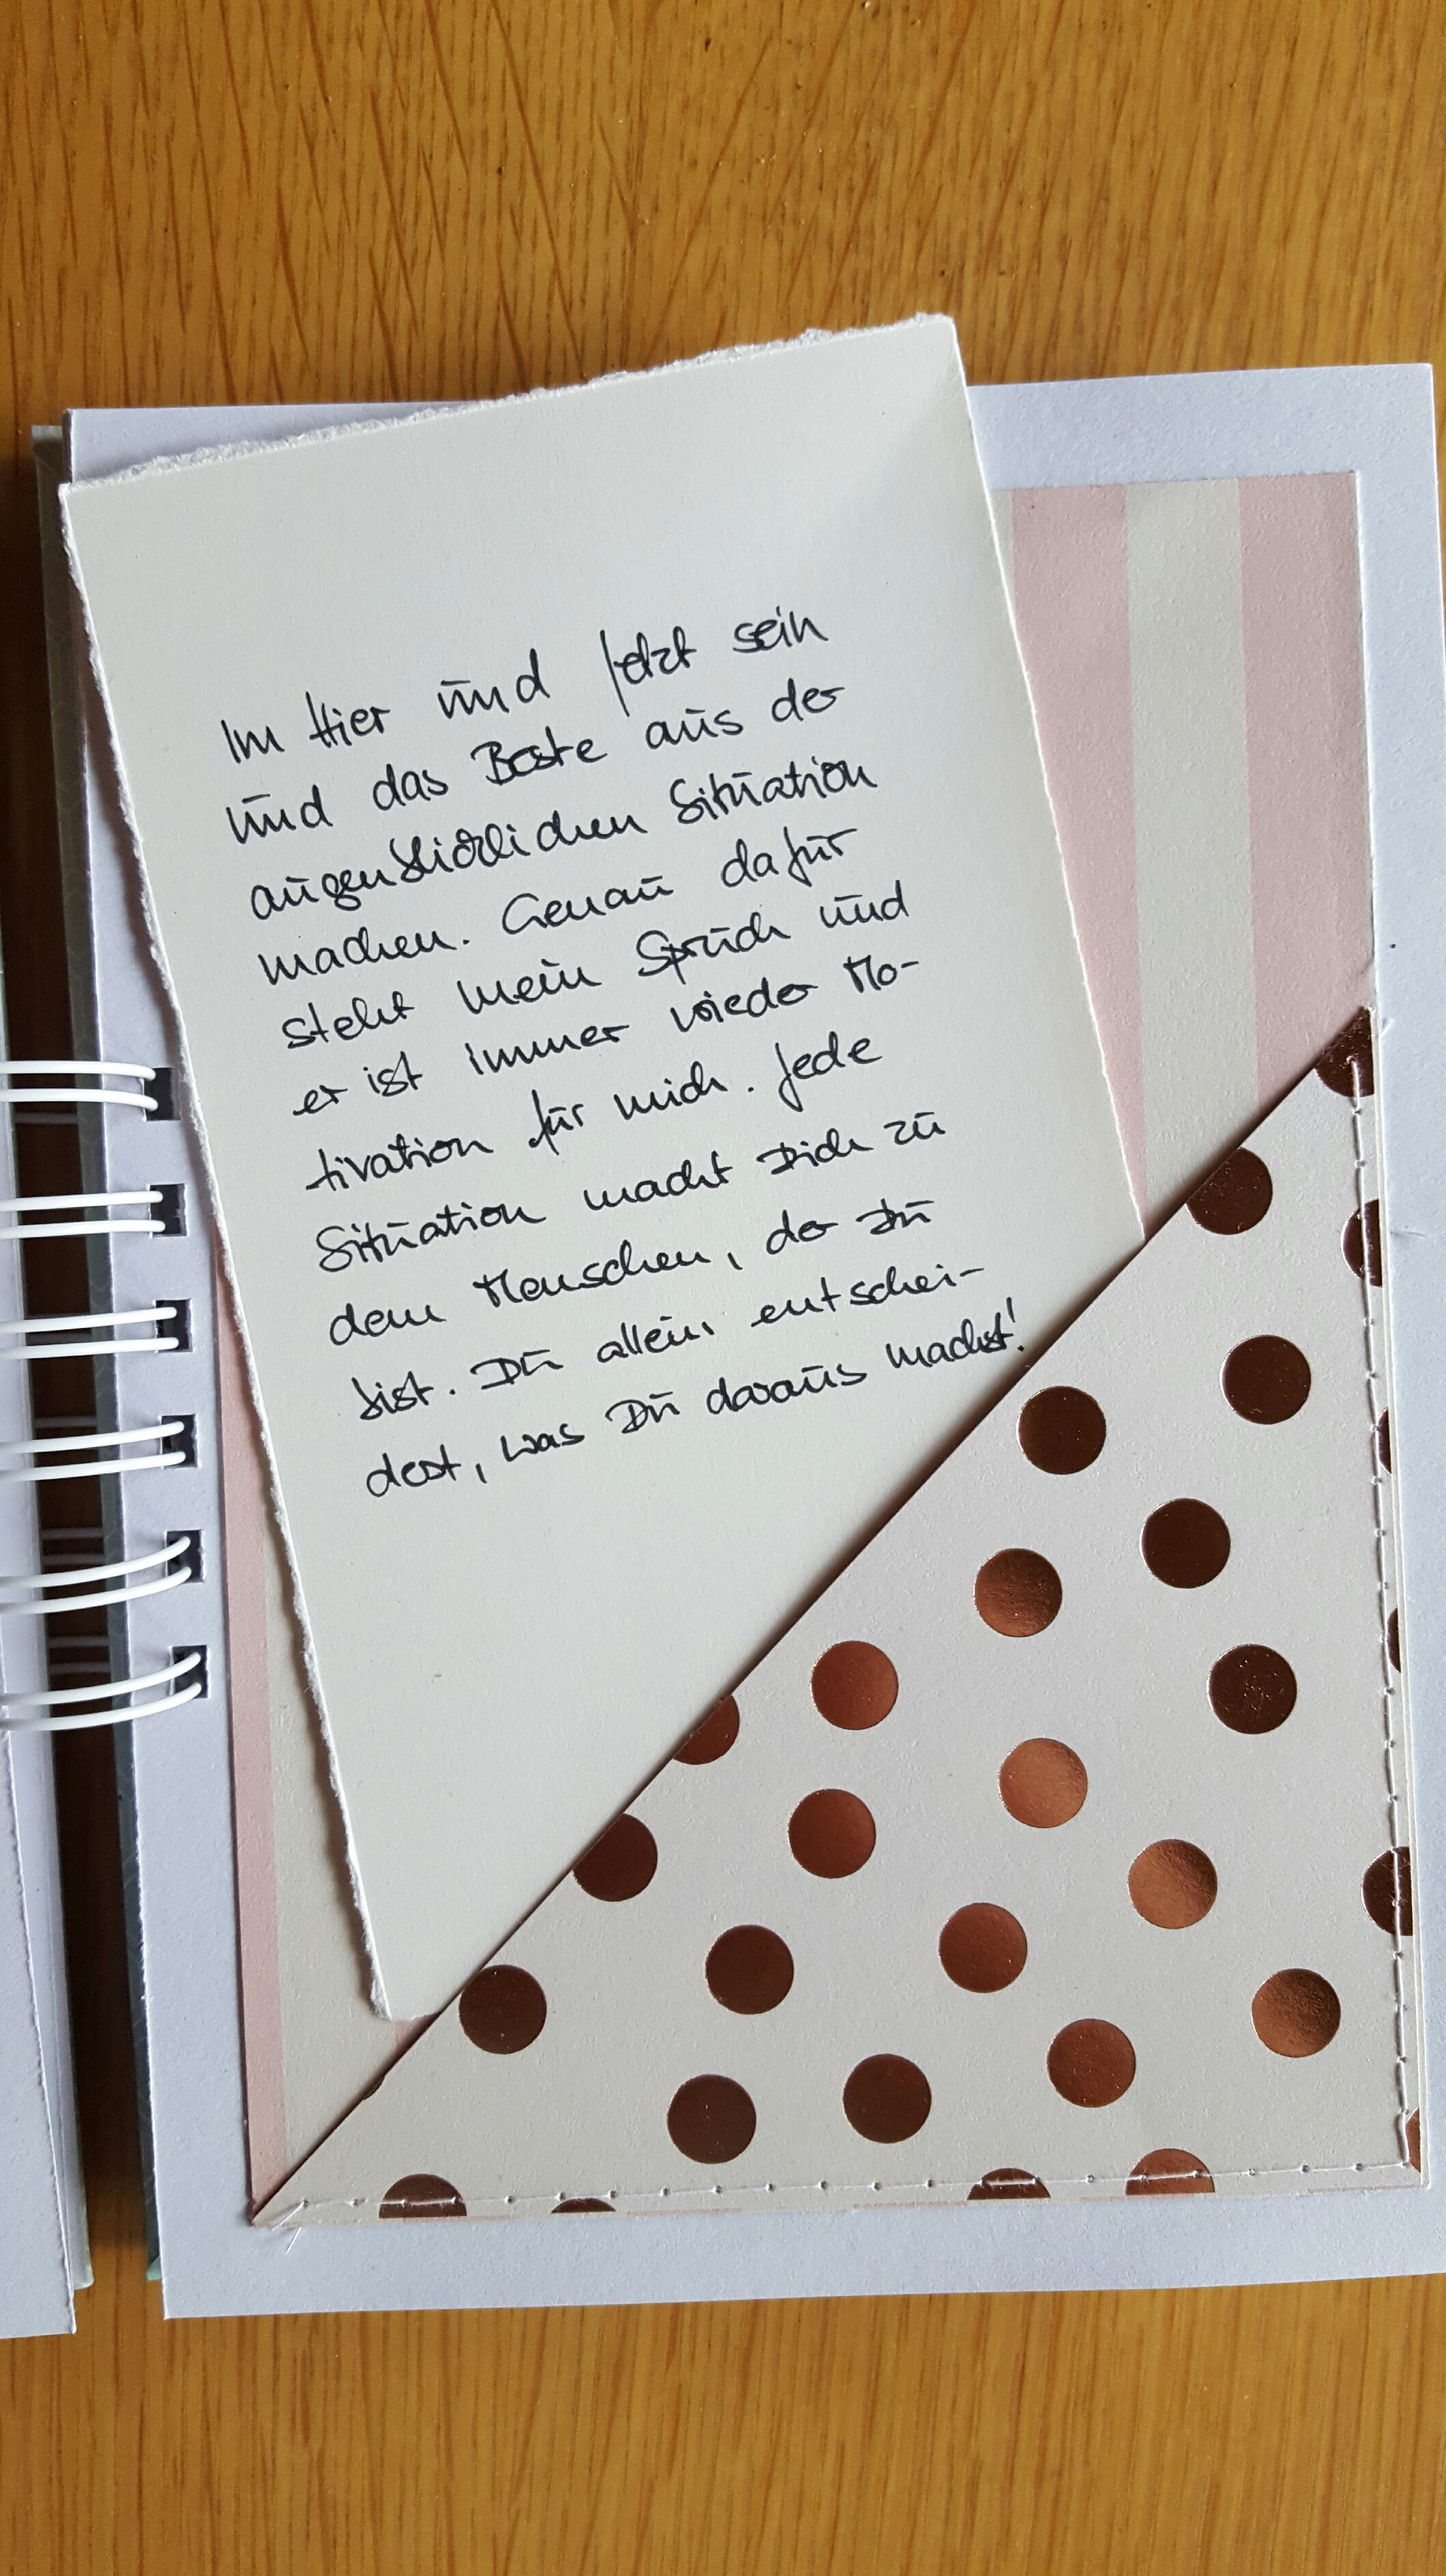 Im Hier und Jetzt sein
und das Beste aus der
augenblicklichen Situation
machen. Genau dafür
steht mein Spruch und
er ist immer wieder Mo-
tivation für mich. Jede
Situation macht Dich zu
dem Menschen, der Du
bist. Du allein entschei-
dest, was Du daraus machst!